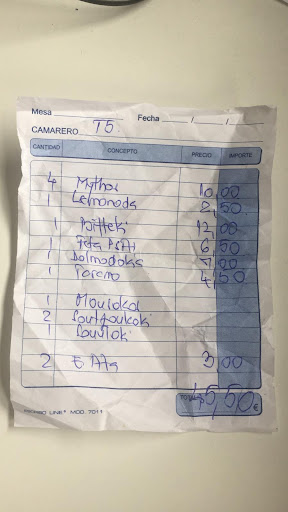 Mesa
Fecha / /
CAMARERO T5
CANTIDAD CONCEPTO PRECIO IMPORTE
4 Mythos 10,00
1 Lemonada 2,50
1 Bifteki 12,00
1 Feta Psiti 6,50
1 Dolmadakia 7,00
1 4,50
1
2 Soutzoukaki
1 Souvlaki
2 3,00
TOTAL 45,50 €
LINE* MOD. 7011